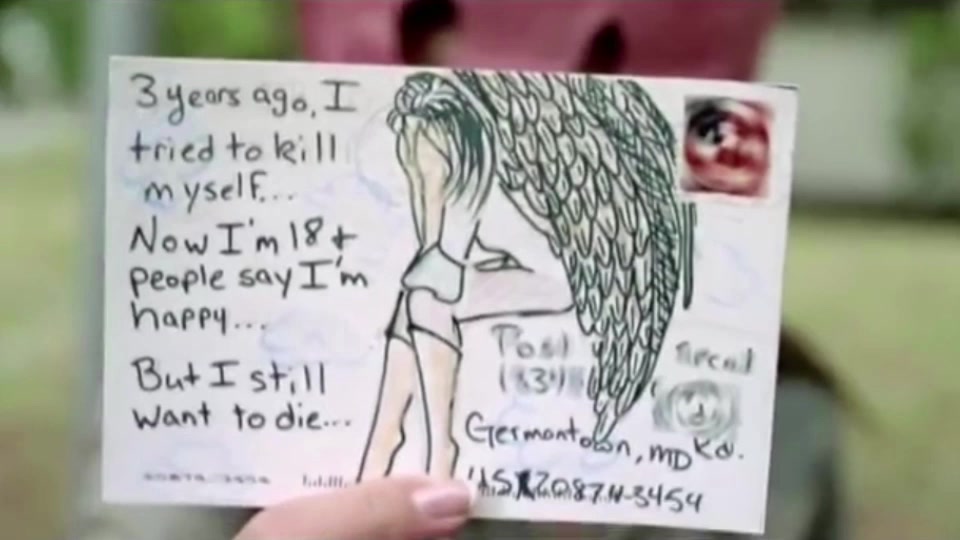 3 years ago, I
tried to kill
myself...
Now I'm 18 +
people say I'm
happy...
But I still
want to die...
Post
Germantown, MD Rd.
3454